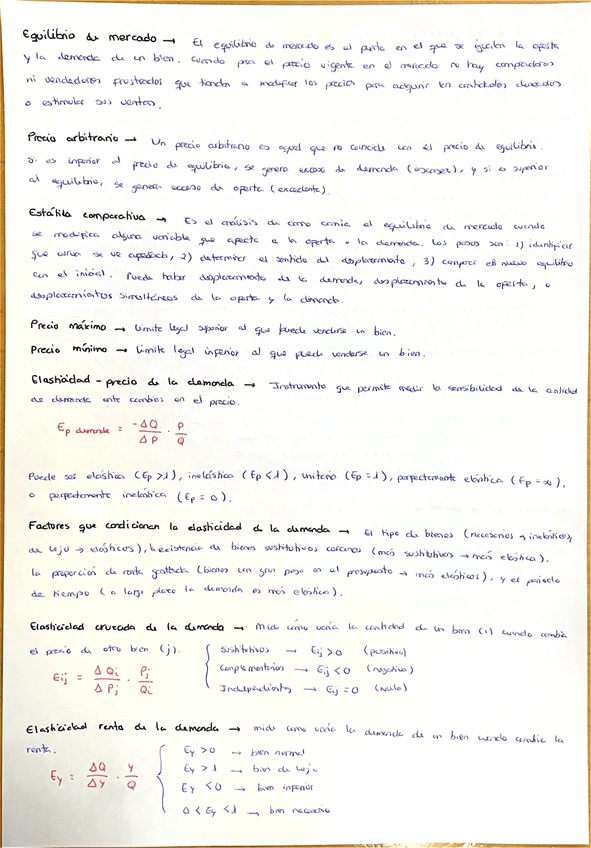 Equilibrio de mercado → El equilibrio de mercado es el punto en el que se igualan la oferta
y la demanda de un bien. Cuando pasa el precio vigente en el mercado no hay compradores
ni vendedores frustrados que tiendan a modificar los precios para adquirir las cantidades deseadas
o estimular sus ventas.
Precio arbitrario → Un precio arbitrario es aquel que no coincide con el precio de equilibrio.
Si es inferior al precio de equilibrio, se genera exceso de demanda (escasez), y si es superior
al equilibrio, se genera exceso de oferta (excedente).
Estática comparativa → Es el análisis de como cambia el equilibrio de mercado cuando
se modifica alguna variable que afecta a la oferta o la demanda. Los pasos son: 1) identificar
que curva se ve afectada, 2) determinar el sentido del desplazamiento, 3) comparar el nuevo equilibrio
con el inicial. Puede haber desplazamiento de la demanda, desplazamiento de la oferta, o
desplazamientos simultáneos de la oferta y la demanda.
Precio máximo → Límite legal superior al que puede venderse un bien.
Precio mínimo → Límite legal inferior al que puede venderse un bien.
Elasticidad - precio de la demanda → Instrumento que permite medir la sensibilidad de la cantidad
de demanda ante cambios en el precio.
Ep demanda = -ΔQ/ΔP · P/Q
Puede ser elástica (Ep > 1), inelástica (Ep < 1), unitaria (Ep = 1), perfectamente elástica (Ep = ∞),
o perfectamente inelástica (Ep = 0).
Factores que condicionan la elasticidad de la demanda → El tipo de bienes (necesarios → inelásticos,
de lujo → elásticos), la existencia de bienes sustitutivos cercanos (más sustitutivos → más elástica),
la proporción de renta gastada (bienes con gran peso en el presupuesto → más elásticos), y el periodo
de tiempo (a largo plazo la demanda es más elástica).
Elasticidad cruzada de la demanda → Mide cómo varía la cantidad de un bien (i) cuando cambia
el precio de otro bien (j).
Sustitutivos → Eij > 0 (positiva)
Eij = ΔQi/ΔPj · Pj/Qi
Complementarios → Eij < 0 (negativa)
Independientes → Eij = 0 (nula)
Elasticidad renta de la demanda → mide como varía la demanda de un bien cuando cambia la
renta.
Ey = ΔQ/ΔY · Y/Q
Ey > 0 → bien normal
Ey > 1 → bien de lujo
Ey < 0 → bien inferior
0 < Ey < 1 → bien necesario